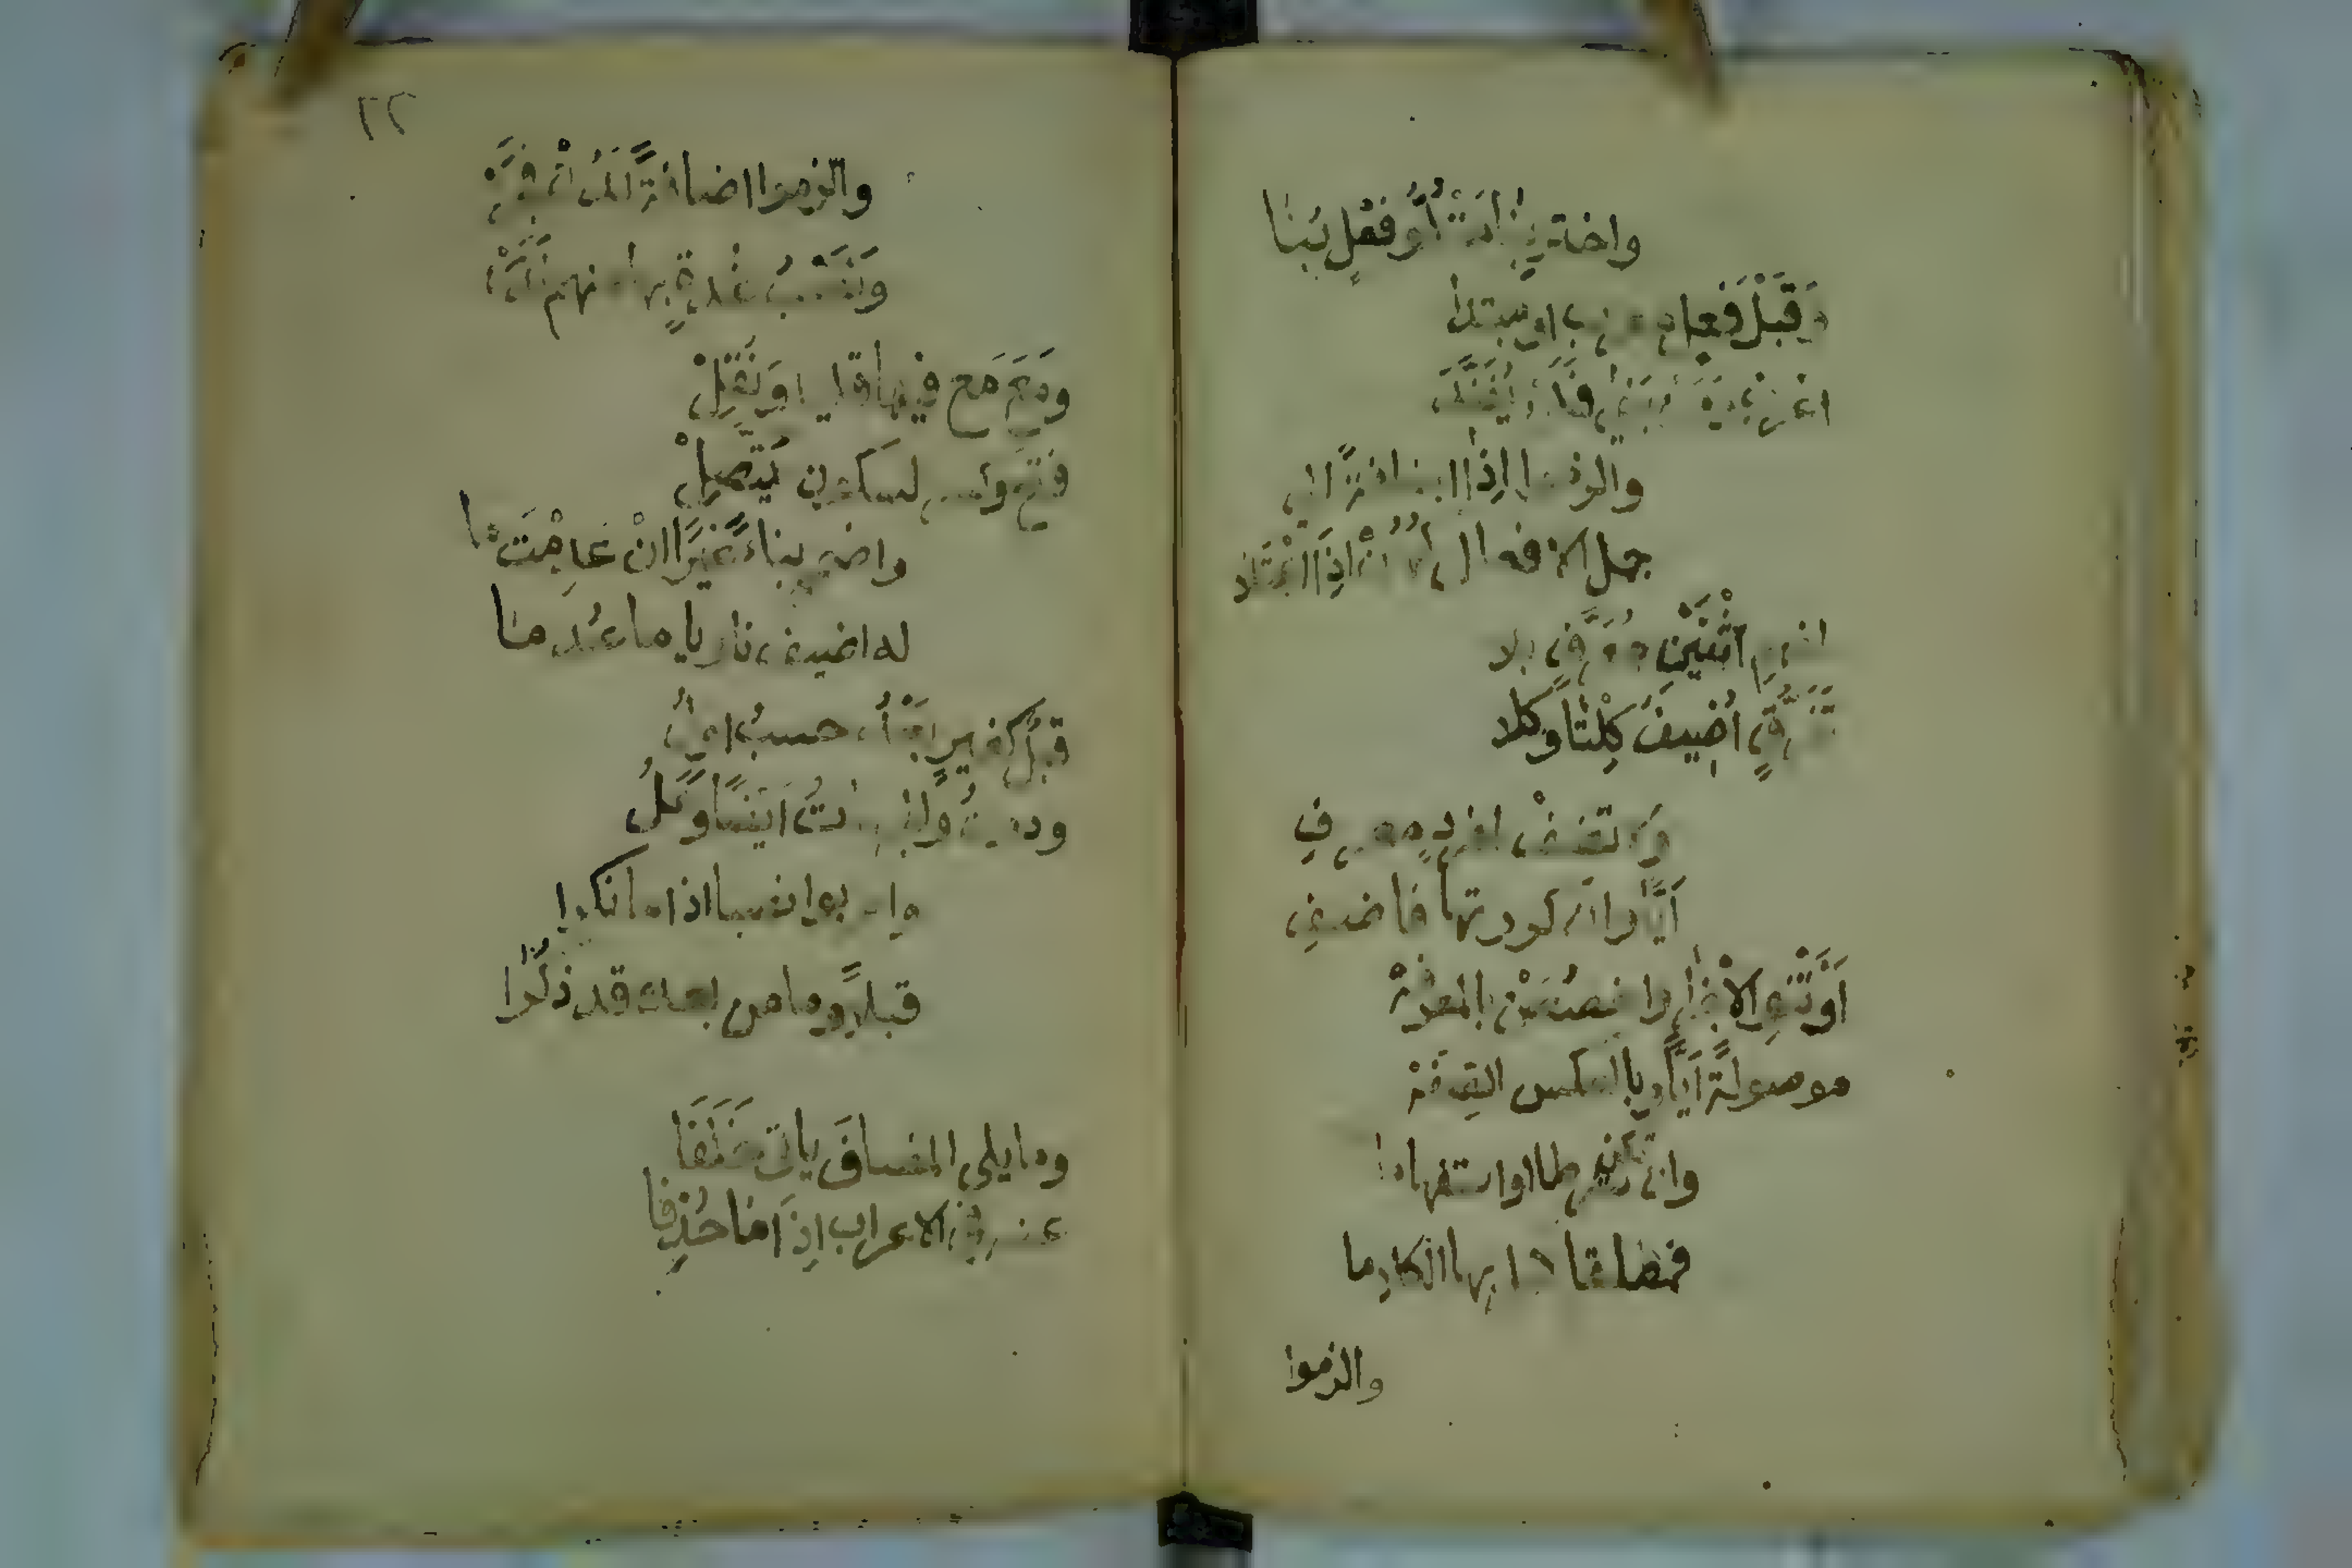 واختر بنا متلو فعل بنيا
وقبل فعل معرب او مبتدا
اعرب ومن بنى فلن يفندا
والزموا اذا اضافة الى
جمل الافعال كهن اذا اعتلا
لمفهم اثنين معرف بلا
تفرق اضيف كلتا وكلا
ولا تضف لمفرد معرف
أيا وان كررتها فاضف
أو تنو الاجزا واخصصن بالمعرفه
موصولة أيا وبالعكس الصفه
وان تكن شرطا او استفهاما
فمطلقا كمل بها الكلاما
والزموا
٢٢
والزموا اضافة لدن فجر
ونصب غدوة بها عنهم ندر
ومع مع فيها قليل ونقل
فتح وكسر لسكون يتصل
واضمم بناء غيرا ان عدمت ما
له اضيف ناويا ما عدما
قبل كغير بعد حسب اول
ودون والجهات ايضا وعل
واعربوا نصبا اذا ما نكرا
قبلا وما من بعده قد ذكرا
وما يلي المضاف ياتي خلفا
عنه في الاعراب اذا ما حذفا